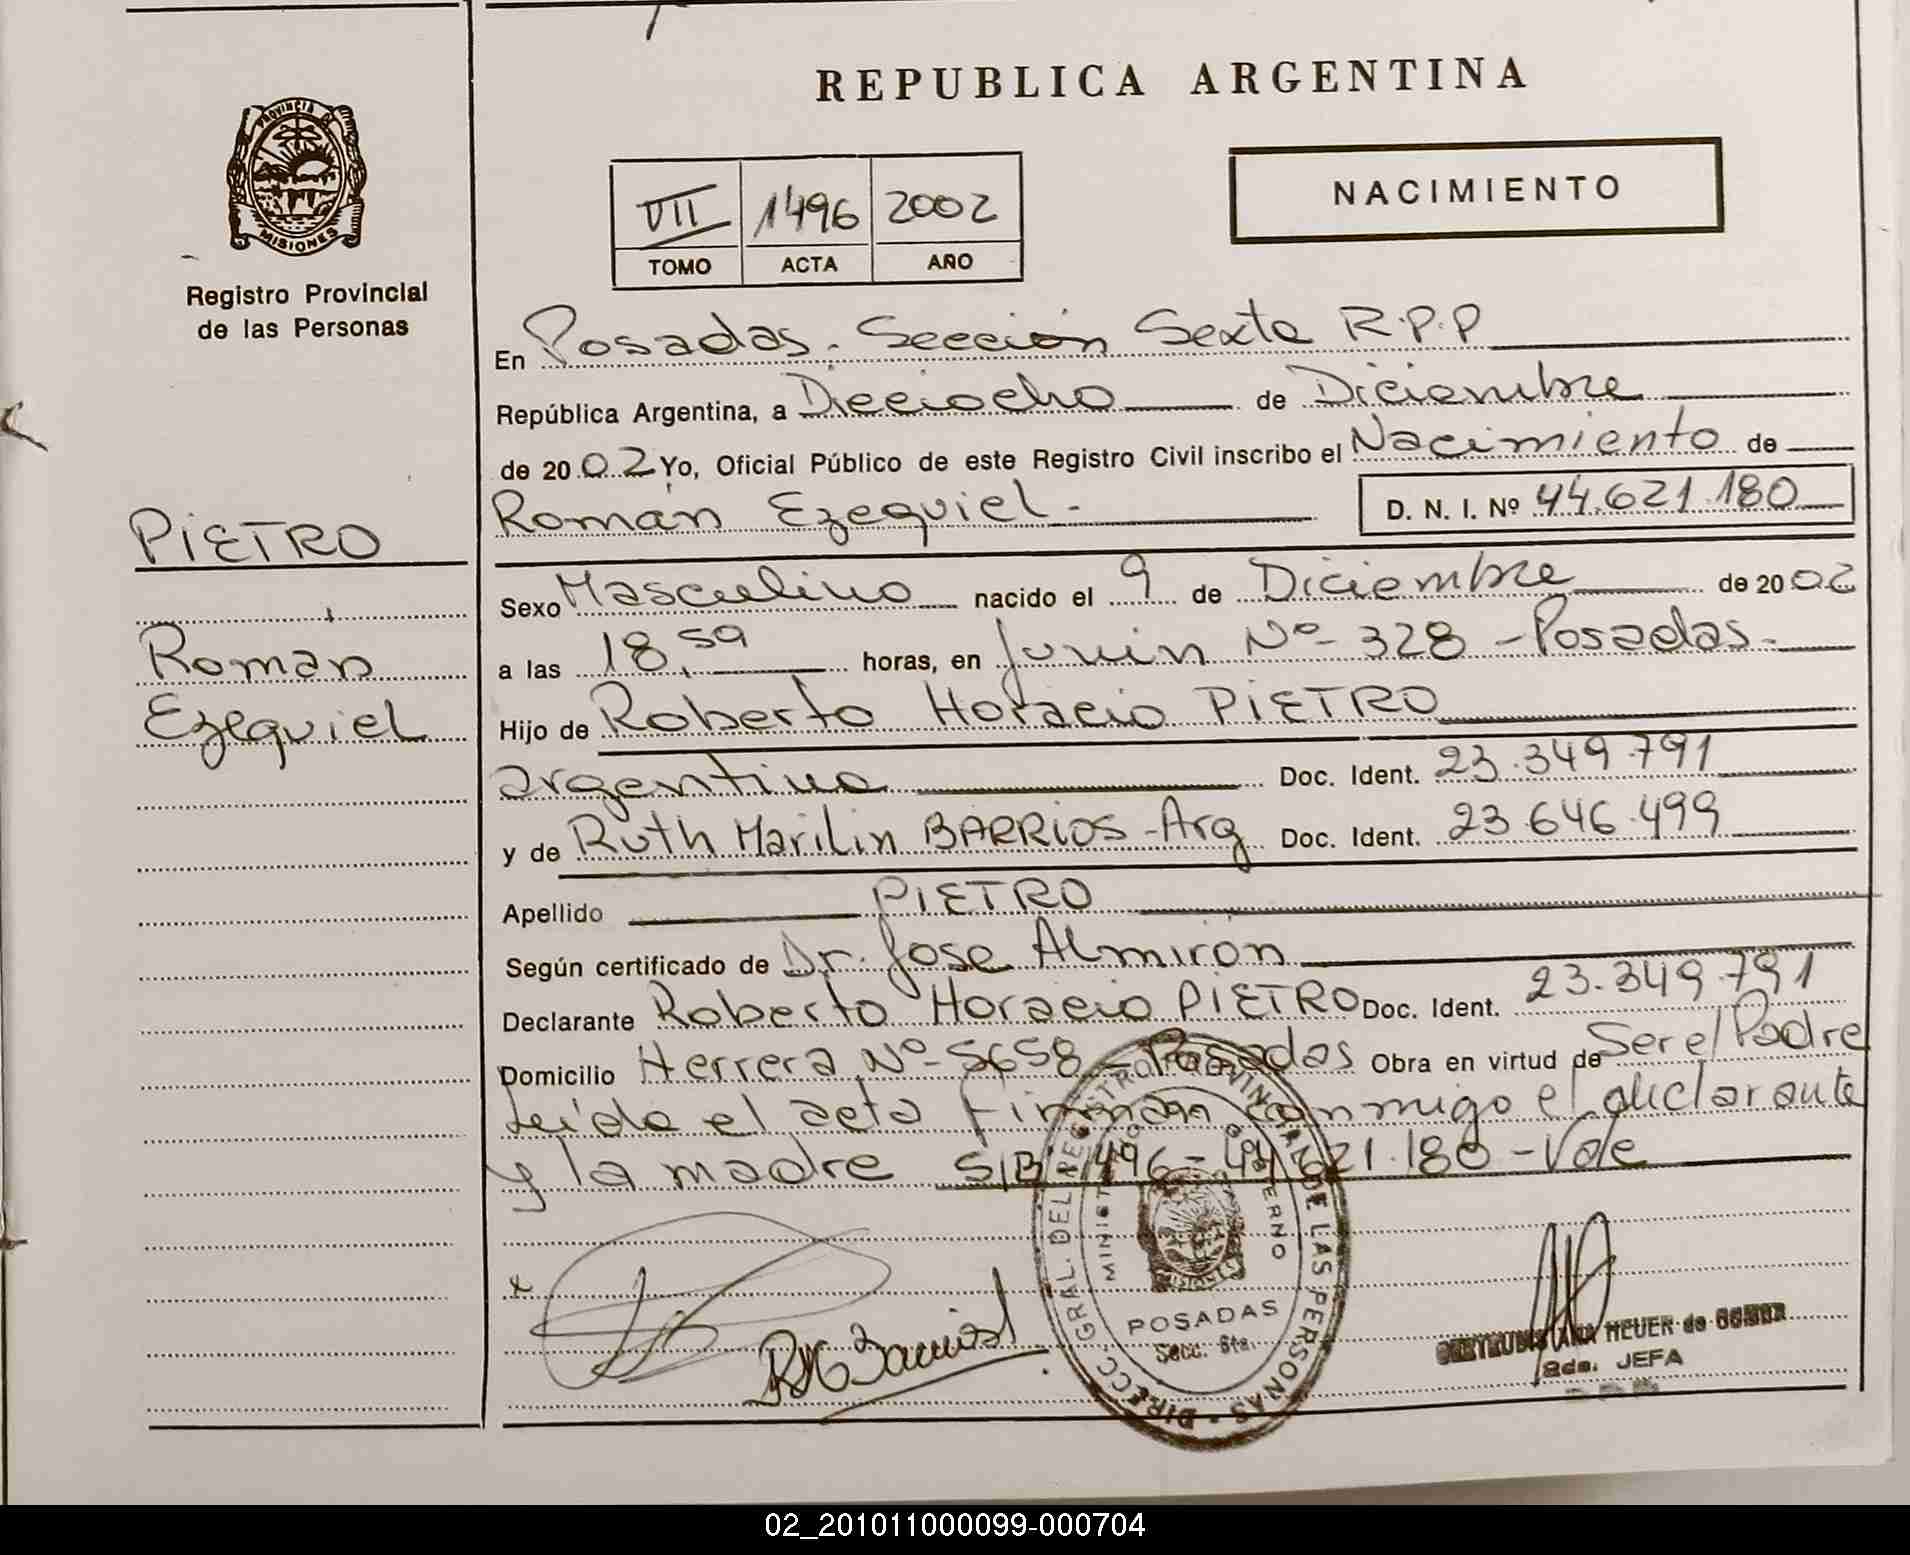 REPUBLICA ARGENTINA
PROVINCIA DE
MISIONES
Registro Provincial
de las Personas
VII 1496 2002
TOMO ACTA AÑO
NACIMIENTO
En Posadas. Sección Sexta R.P.P
República Argentina, a Dieciocho de Diciembre
de 2002 Yo, Oficial Público de este Registro Civil inscribo el Nacimiento de
Román Ezequiel.-
D. N. I. Nº 44.621.180
PIETRO
Román
Ezequiel
Sexo Masculino nacido el 9 de Diciembre de 2002
a las 18,59 horas, en Junin Nº- 328 - Posadas.-
Hijo de Roberto Horacio PIETRO
argentino Doc. Ident. 23.349.791
y de Ruth Marilin BARRIOS - Arg Doc. Ident. 23.646.499
Apellido PIETRO
Según certificado de Dr. Jose Almirón
Declarante Roberto Horacio PIETRO Doc. Ident. 23.349.791
Domicilio Herrera Nº- 5658 - Posadas Obra en virtud de Ser el Padre
Leída el acta firman conmigo el declarante
y la madre S/B 1496 - 44.621.180 - Vale
DIRECC. GRAL. DEL REGISTRO PROVINCIAL DE LAS PERSONAS
MINISTERIO DE GOBIERNO
MISIONES
POSADAS
Secc. 6ta.
HEUER de
2da. JEFA
02_201011000099-000704